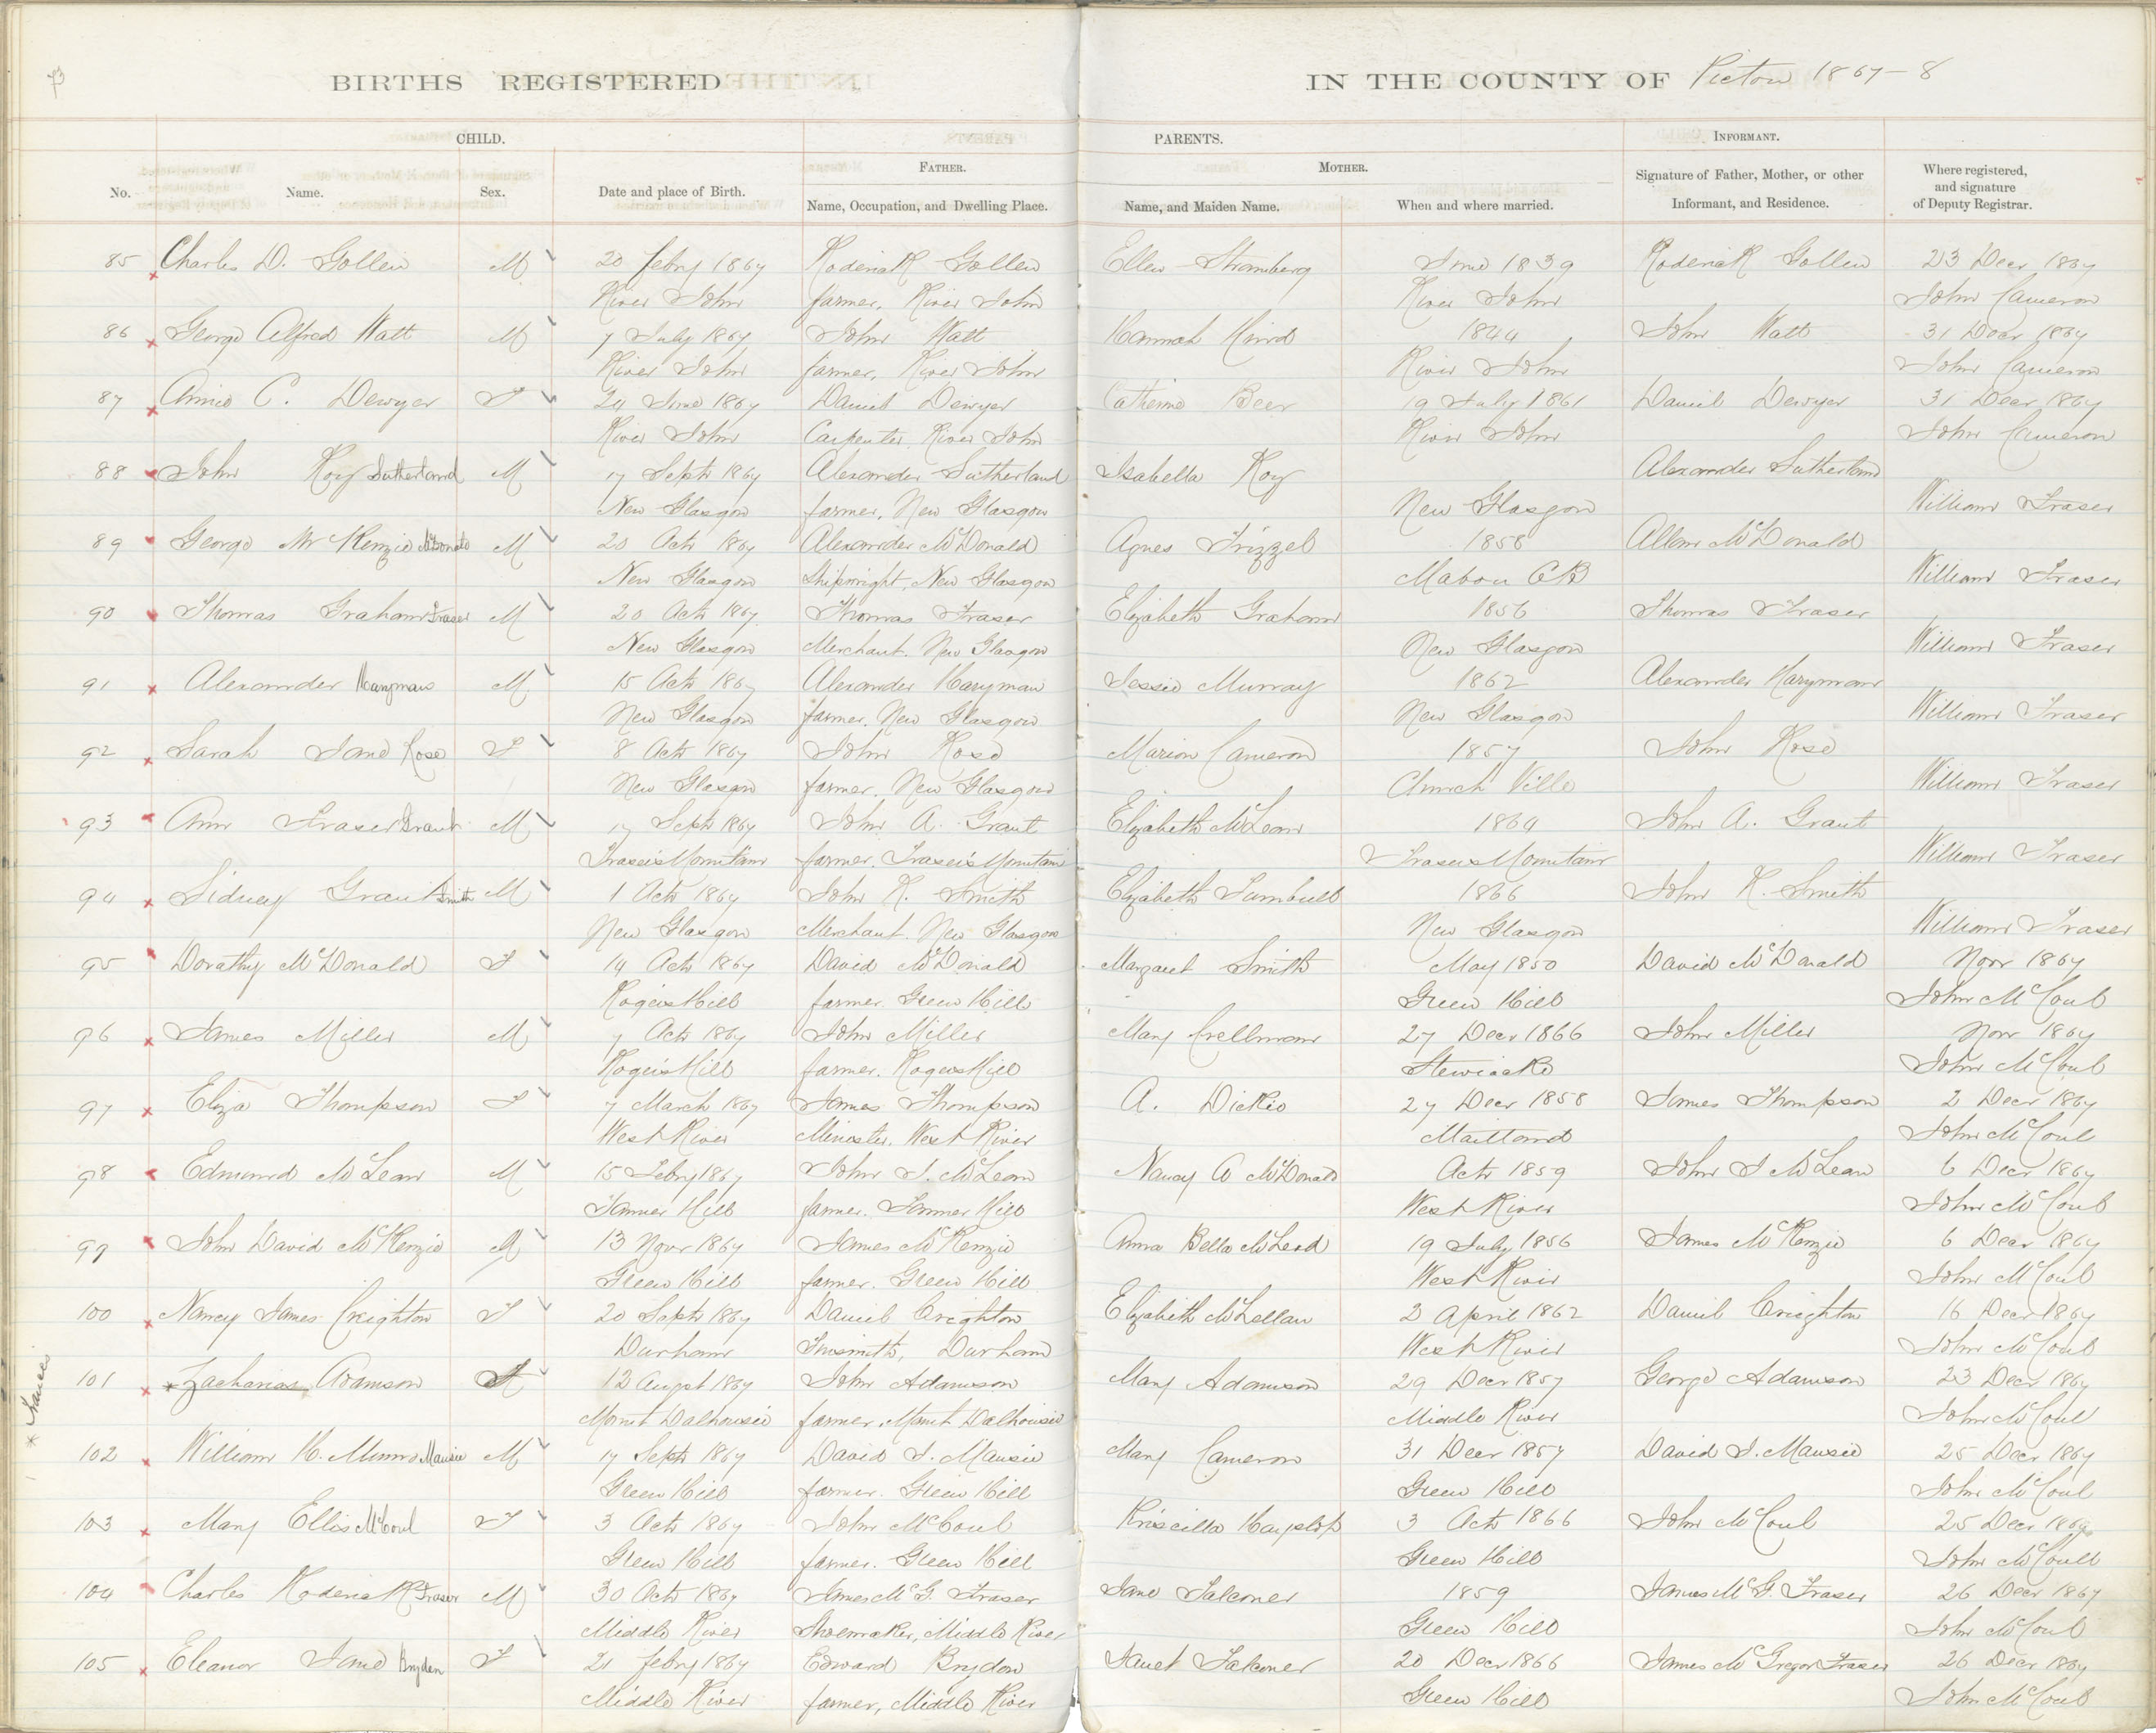 73
BIRTHS REGISTERED IN THE COUNTY OF Pictou 1867-8
CHILD. PARENTS. INFORMANT.
No. Name. Sex. Date and place of Birth. FATHER. Name, Occupation, and Dwelling Place. MOTHER. Name, and Maiden Name. When and where married. Signature of Father, Mother, or other Informant, and Residence. Where registered, and signature of Deputy Registrar.
85 Charles D. Gollen M 20 Febry 1867 Roderick Gollen Ellen Stramberg June 1839 Roderick Gollen 23 Decr 1867
River John farmer, River John River John John Cameron
86 George Alfred Watt M 7 July 1867 John Watt Hannah 1844 John Watt 31 Decr 1867
River John farmer, River John River John John Cameron
87 Annie C. Dewyer F 24 June 1867 Daniel Dewyer Catherine Beer 19 July 1861 Daniel Dewyer 31 Decr 1867
River John Carpenter River John River John John Cameron
88 John Roy Sutherland M 17 Septr 1867 Alexander Sutherland Isabella Roy Alexander Sutherland
New Glasgow farmer, New Glasgow New Glasgow William Fraser
89 George McKenzie McDonald M 20 Octr 1867 Alexander McDonald Agnes Frizzel 1858 Allan McDonald
New Glasgow Shipwright, New Glasgow Mabou CB William Fraser
90 Thomas Graham Fraser M 20 Octr 1867 Thomas Fraser Elizabeth Graham 1856 Thomas Fraser
New Glasgow Merchant. New Glasgow New Glasgow William Fraser
91 Alexander Haryman M 15 Octr 1867 Alexander Haryman Jessie Murray 1862 Alexander Haryman
New Glasgow farmer. New Glasgow New Glasgow William Fraser
92 Sarah Jane Rose F 8 Octr 1867 John Rose Marion Cameron 1857 John Rose
New Glasgow farmer. New Glasgow Church Ville William Fraser
93 Ann Fraser Grant M 17 Septr 1867 John A. Grant Elizabeth McLean 1864 John A. Grant
Fraser's Mountain farmer. Fraser's Mountain Frasers Mountain William Fraser
94 Sidney Grant Smith M 1 Octr 1867 John R. Smith Elizabeth Turnbull 1866 John R. Smith
New Glasgow Merchant. New Glasgow New Glasgow William Fraser
95 Dorathy McDonald F 14 Octr 1867 David McDonald Margaret Smith May 1850 David McDonald Novr 1867
Roger's Hill farmer. Green Hill Green Hill John McCoul
96 James Miller M 7 Octr 1867 John Miller Mary Crellman 27 Decr 1866 John Miller Novr 1867
Roger's Hill farmer. Rogers Hill Stewiacke John McCoul
97 Eliza Thompson F 7 March 1867 James Thompson A. Dickie 27 Decr 1858 James Thompson 2 Decr 1867
West River Minister. West River Maitland John McCoul
98 Edmund McLean M 15 Febry 1867 John J. McLean Nancy A McDonald Octr 1859 John J McLean 6 Decr 1867
Tanner Hill farmer. Tanner Hill West River John McCoul
99 John David McKenzie M 13 Novr 1867 James McKenzie Anna Bella McLeod 19 July 1856 James McKenzie 6 Decr 1867
Green Hill farmer. Green Hill West River John McCoul
100 Nancy James Creighton F 20 Septr 1867 Daniel Creighton Elizabeth McLellan 2 April 1862 Daniel Creighton 16 Decr 1867
Durham Tinsmith, Durham West River John McCoul
101 * Zacharias Adamson 12 Augst 1867 John Adamson Mary Adamson 29 Decr 1857 George Adamson 23 Decr 1867
Mount Dalhousie farmer. Mount Dalhousie Middle River John McCoul
102 William H. Munro Mausie M 17 Septr 1867 David J. Mausie Mary Cameron 31 Decr 1857 David J. Mausie 25 Decr 1867
Green Hill farmer. Green Hill Green Hill John McCoul
103 Mary Ellis McCoul F 3 Octr 1867 John McCoul Priscilla Hayslop 3 Octr 1866 John McCoul 25 Decr 1867
Green Hill farmer. Green Hill Green Hill John McCoull
104 Charles Roderick Fraser M 30 Octr 1867 James McG. Fraser Jane Falconer 1859 James McG. Fraser 26 Decr 1867
Middle River Shoemaker, Middle River Green Hill John McCoul
105 Eleanor Jane Bryden F 21 Febry 1867 Edward Brydon Janet Falconer 20 Decr 1866 James McGregor Fraser 26 Decr 1867
Middle River farmer, Middle River Green Hill John McCoul